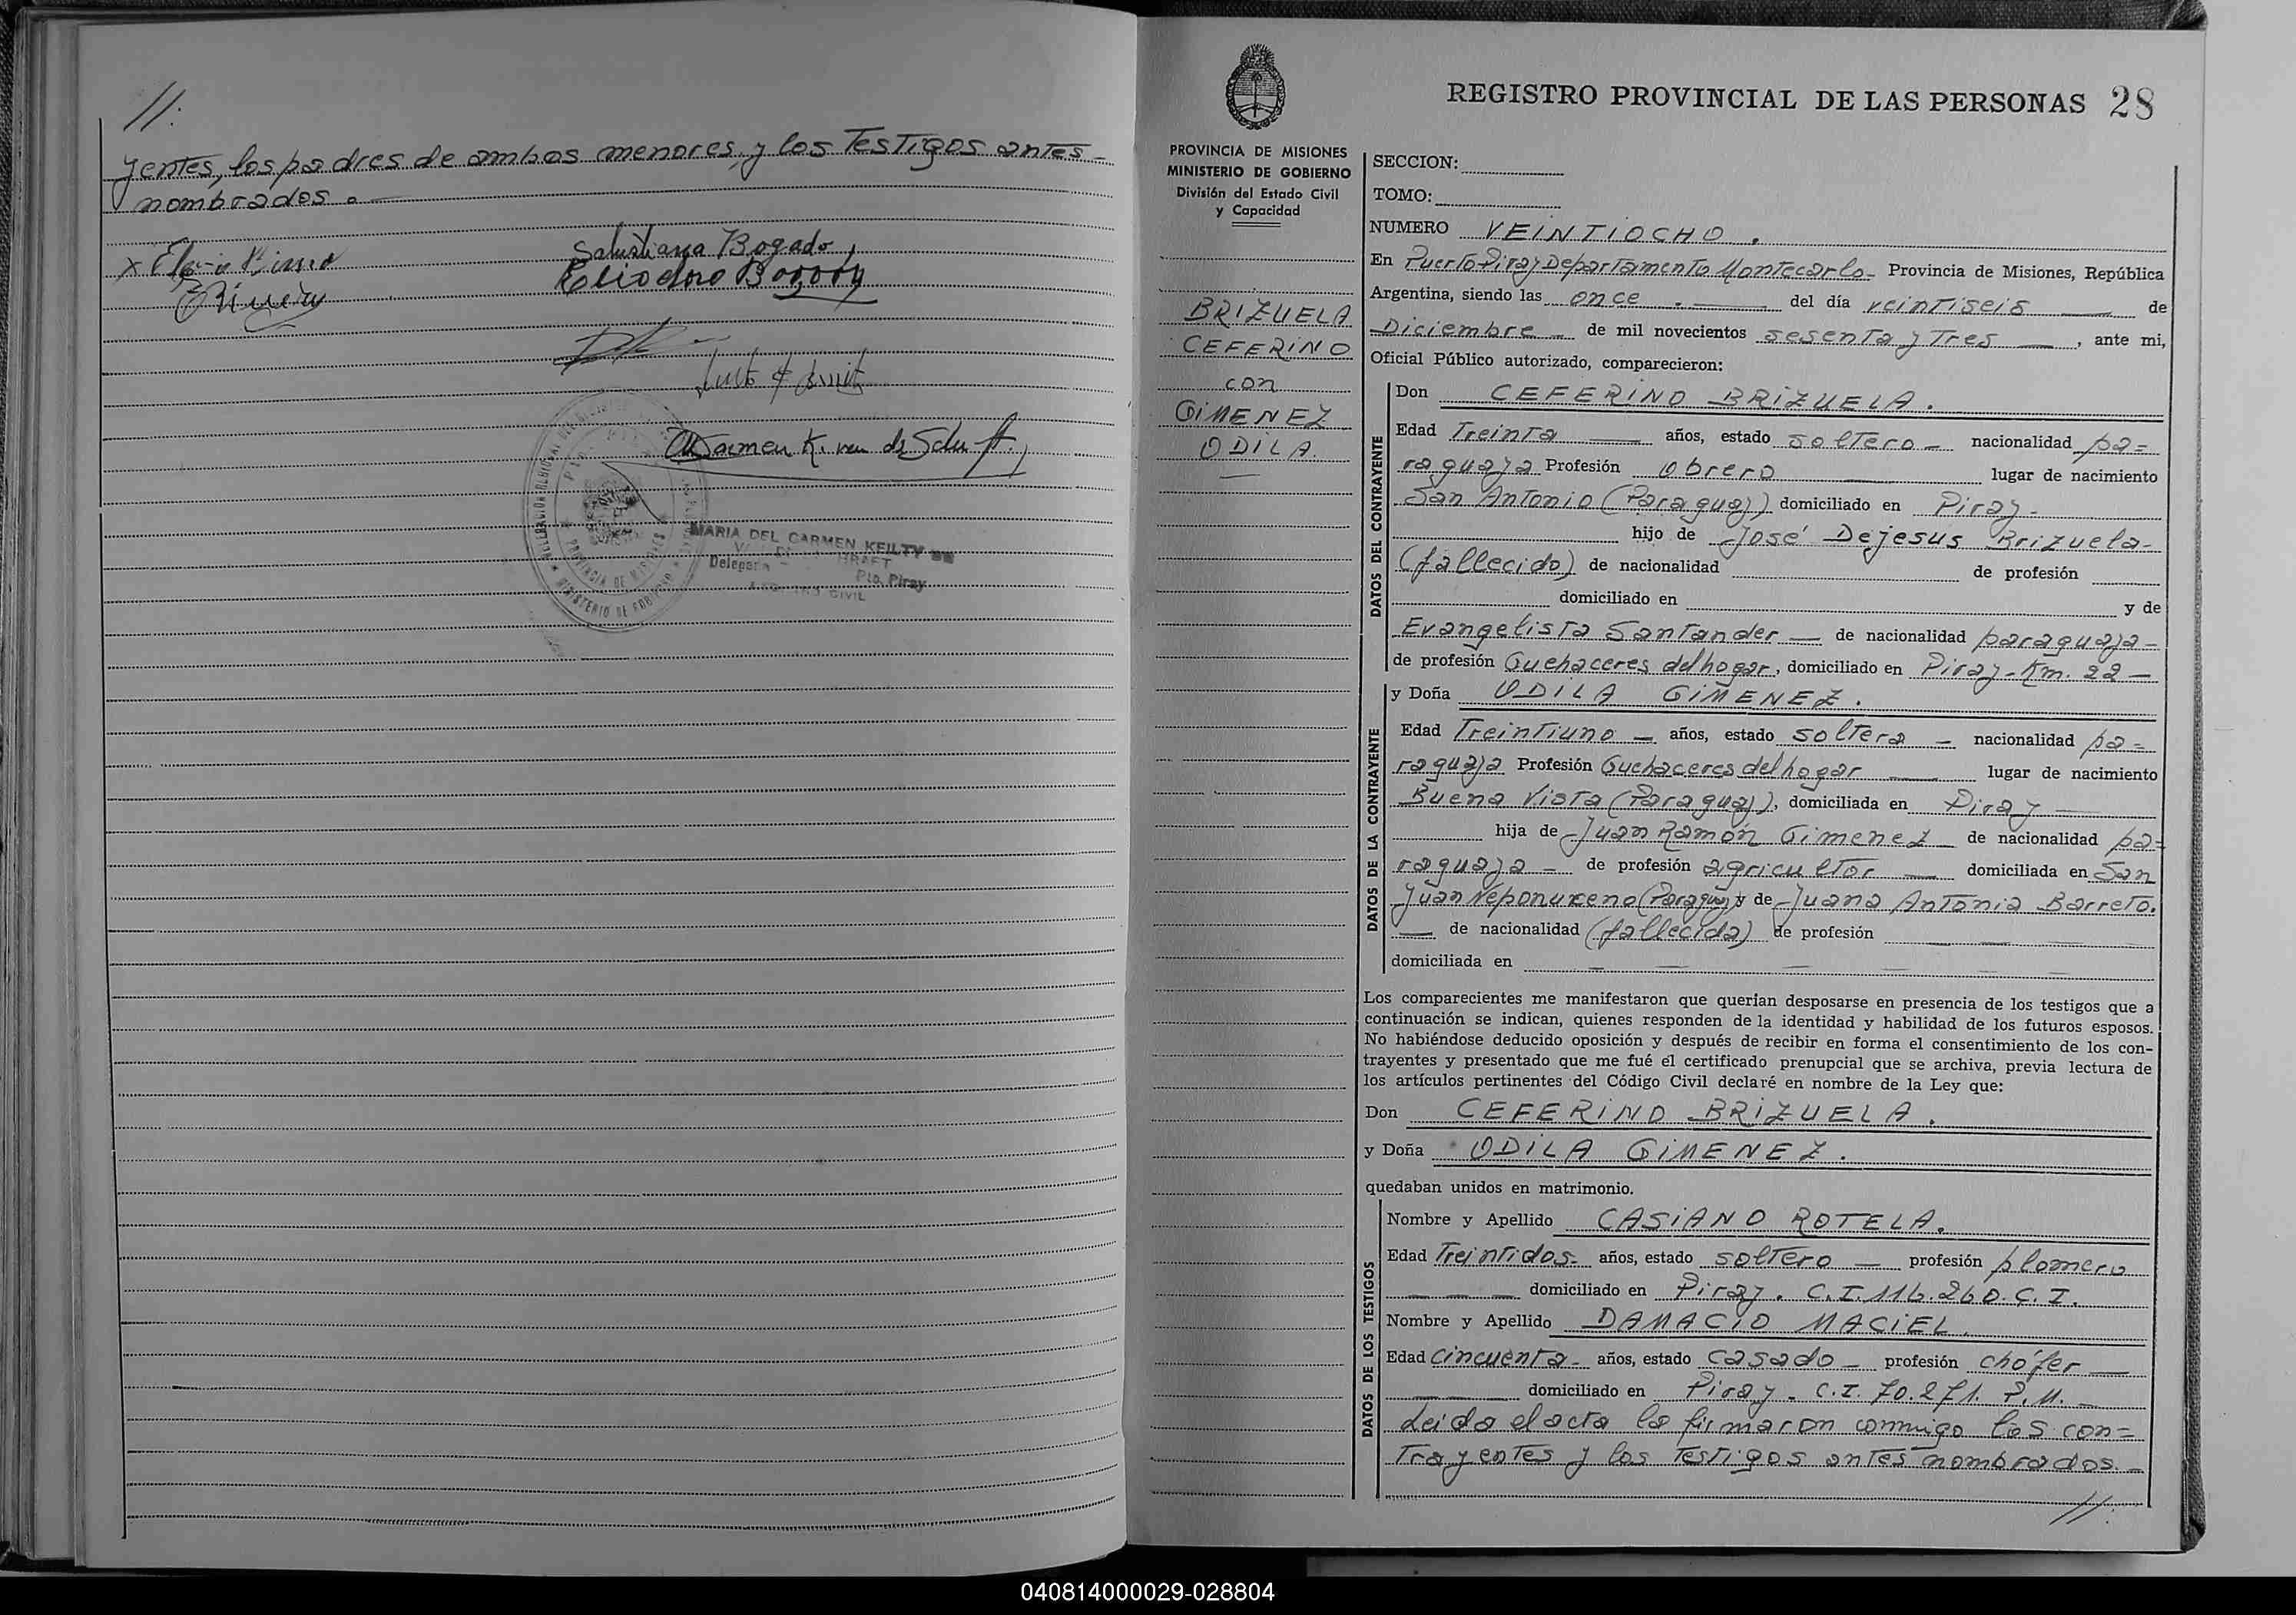 //.
yentes, los padres de ambos menores, y los Testigos antes-
nombrados.
Salustiana Bogado
Eliodoro Bogado
MARIA DEL CARMEN KEILTY DE
Pto. Piray
CIVIL
PROVINCIA DE MISIONES
MINISTERIO DE GOBIERNO
División del Estado Civil
y Capacidad
BRIZUELA
CEFERINO
con
GIMENEZ
ODILA.
REGISTRO PROVINCIAL DE LAS PERSONAS 28
SECCION:
TOMO:
NUMERO VEINTIOCHO.
En Puerto Piray Departamento Montecarlo- Provincia de Misiones, República
Argentina, siendo las once . — del día veintiseis — de
Diciembre - de mil novecientos sesenta y Tres —, ante mi,
Oficial Público autorizado, comparecieron:
DATOS DEL CONTRAYENTE
Don CEFERINO BRIZUELA.
Edad Treinta — años, estado soltero - nacionalidad pa=
raguaya Profesión Obrero lugar de nacimiento
San Antonio (Paraguay) domiciliado en Piray-
hijo de José Dejesus Brizuela-
(fallecido) de nacionalidad de profesión
domiciliado en y de
Evangelista Santander — de nacionalidad paraguaya-
de profesión Quehaceres del hogar, domiciliado en Piray-Km. 22 —
DATOS DE LA CONTRAYENTE
y Doña ODILA GIMENEZ.
Edad Treintiuno — años, estado soltera - nacionalidad pa=
raguaya Profesión Quehaceres del hogar — lugar de nacimiento
Buena Vista (Paraguay), domiciliada en Piray —
hija de Juan Ramón Gimenez - de nacionalidad pa=
raguaya - de profesión agricultor — domiciliada en San
Juan Neponuceno (Paraguay) y de Juana Antonia Barreto.
— de nacionalidad (fallecida) de profesión — — —
domiciliada en — — — — — —
Los comparecientes me manifestaron que querían desposarse en presencia de los testigos que a
continuación se indican, quienes responden de la identidad y habilidad de los futuros esposos.
No habiéndose deducido oposición y después de recibir en forma el consentimiento de los con-
trayentes y presentado que me fué el certificado prenupcial que se archiva, previa lectura de
los artículos pertinentes del Código Civil declaré en nombre de la Ley que:
Don CEFERINO BRIZUELA.
y Doña ODILA GIMENEZ.
quedaban unidos en matrimonio.
DATOS DE LOS TESTIGOS
Nombre y Apellido CASIANO ROTELA.
Edad Treintidos- años, estado soltero — profesión plomero
— — — domiciliado en Piray. C.I. 116.260. C.I.
Nombre y Apellido DAMACIO MACIEL.
Edad Cincuenta- años, estado casado - profesión chófer —
— — domiciliado en Piray - C.I. 70.271. P.M. -
Leída el acta la firmaron conmigo los con=
Trayentes y los Testigos antes nombrados.-
//.
040814000029-028804